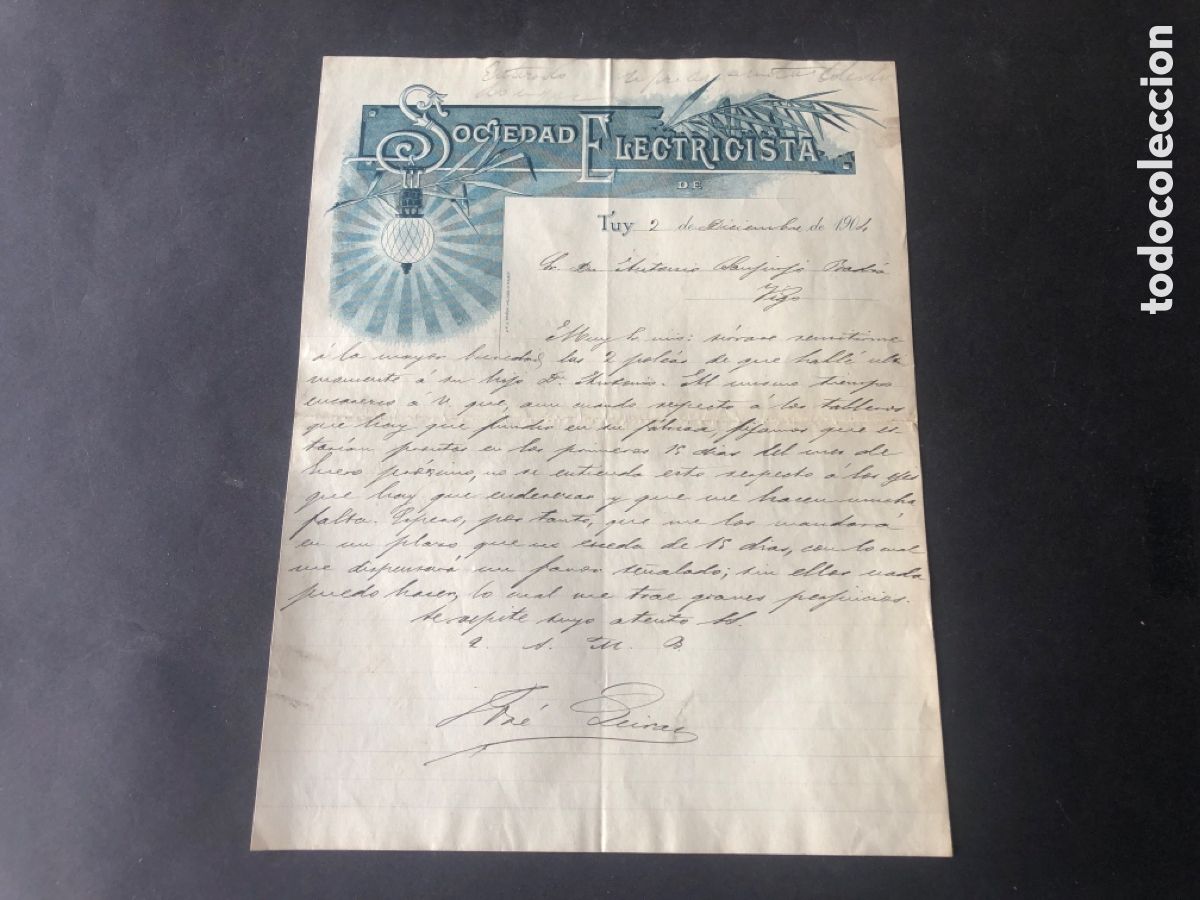 SOCIEDAD ELECTRICISTA
DE
Tuy 2 de Diciembre de 1904
Sr. Dn Antonio Sanjurjo Badía
Vigo
Muy Sr. mio: sirvase remitirme
á la mayor brevedad, las 2 poleas de que hablé ulti
mamente á su hijo D. Antonio. Al mismo tiempo
á V. que, aun cuando respecto á los tableros
que hay que fundir en su fábrica, fijamos que es
tarían prontos en los primeros 15 dias del mes de
Enero próximo, no se entienda esto respecto á los ejes
que hay que enderezar y que me hacen mucha
falta. Espero, por tanto, que me los mandará
en un plazo que no exceda de 15 dias, con lo cual
me dispensará un favor señalado; sin ellos nada
puedo hacer, lo cual me trae graves perjuicios.
Se repite suyo atento SS.
q. S. M. B.
José
todocoleccion